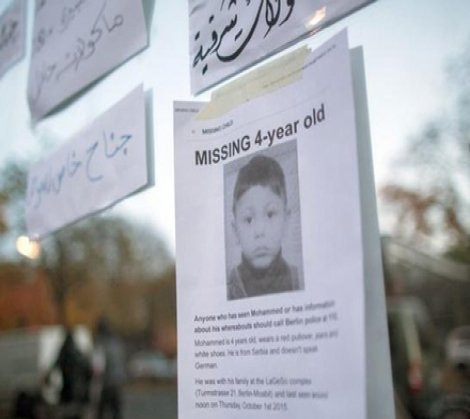 ولات شرقية
جناح خاص
MISSING CHILD
MISSING 4-year old
Anyone who has seen Mohammed or has information
about his whereabouts should call Berlin police at 110.
Mohammed is 4 years old, wears a red pullover, jeans and
white shoes. He is from Serbia and doesn't speak
German.
He was with his family at the LaGeSo complex
(Turmstrasse 21, Berlin-Moabit) and last seen around
noon on Thursday, October 1st 2015